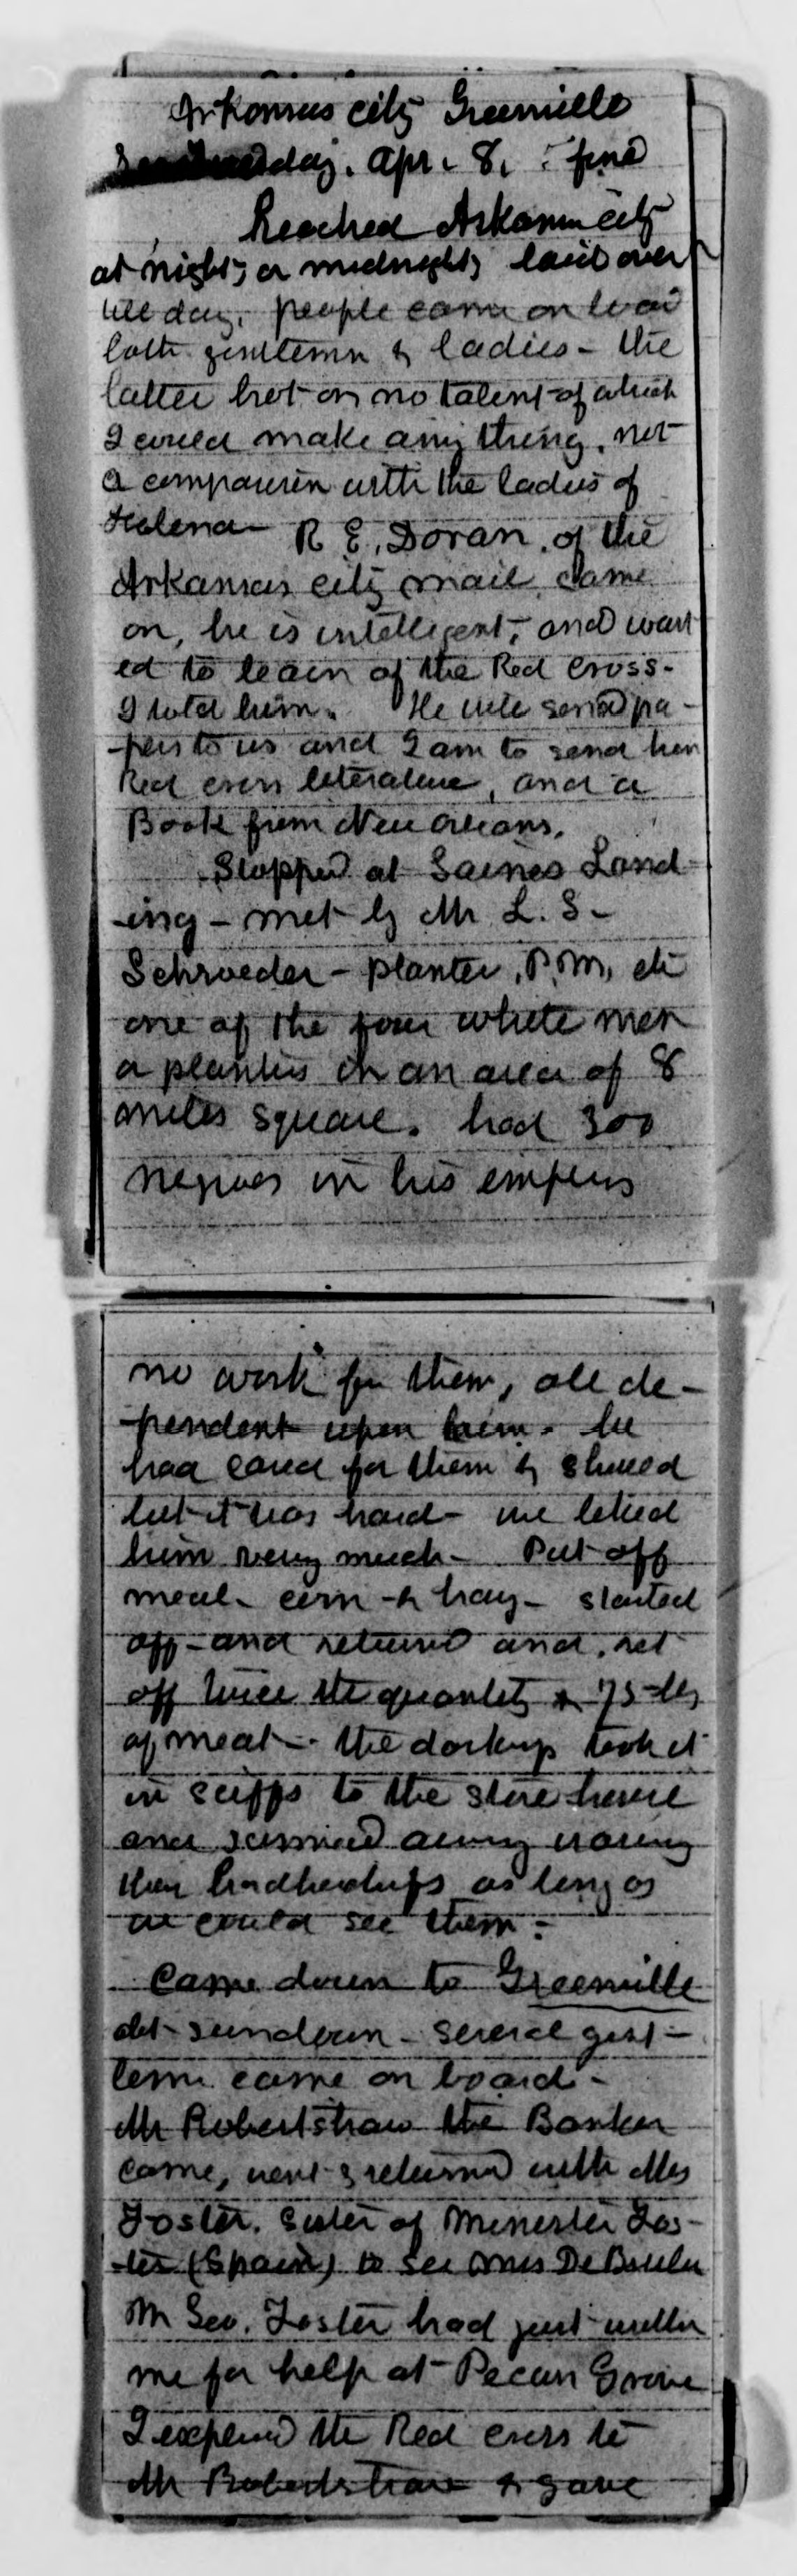 Arkansas city Greenville
day. Apr. 8. fine
Reached Arkansas city
at night, or midnight, laid over
all day. people came on board
both gentlemen & ladies - the
latter but on no talent of which
I could make any thing, not
a comparison with the ladies of
Helena - R E. Doran, of the
Arkansas city mail, came
on, he is intelligent, and want
ed to learn of the Red Cross -
I told him. He will send pa -
- pers to us and I am to send him
Red cross literature, and a
Book from New Orleans.
Stopped at Gaines Land -
- ing - met by Mr L. S -
Schroeder - planter, P.M, etc
one of the four white men
a planters in an area of 8
miles square. had 300
negroes in his employ
no work for them, all de -
- pendent upon him. he
had cared for them & should
but it was hard - we liked
him very much - Put off
meal - corn & hay - started
off - and returned and set
off twice the quantity & 75 lbs
of meat - the darkeys took it
in sciffs to the store house
and away waving
their as long as
we could see them -
Came down to Greenville
at sundown - several gent -
lemen came on board -
Mr Robertshaw the Banker
came, went & returned with Mrs
Foster. Sister of Minester Fos -
- ter (Spain) to see
M Geo. Foster had just written
me for help at Pecan Grove
I explained the Red cross to
Mr Robertshaw & gave